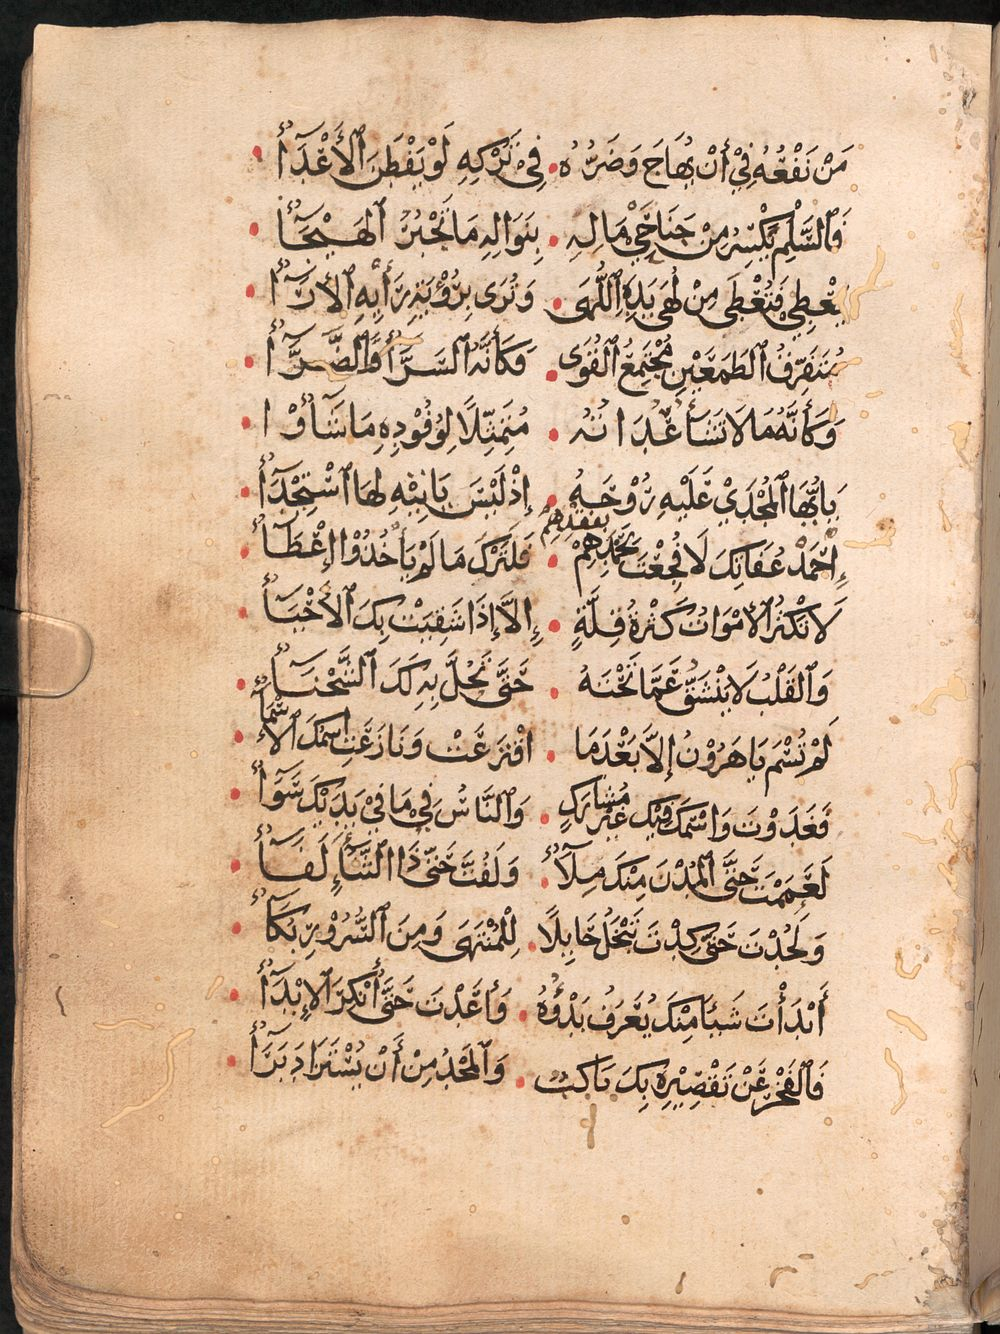 مَنْ نَفْعُهُ فِيْ أَنْ يُهَاجَ وَضَرُّهُ • فِيْ تَرْكِهِ لَوْ يَفْطَنُ الأَعْدَآءُ •
فَالسَّلْمُ يَكْسِرُ مِنْ جَنَاحَيْ مَالِهِ • بِنَوَالِهِ مَا تَجْبُرُ الْهَيْجَآءُ •
يُعْطِيْ فَتُعْطَى مِنْ لُهَى يَدِهِ اللُّهَى • وَتُرَى بِرُؤْيَةِ رَأْيِهِ الأَرَآءُ •
مُتَفَرِّقُ الطَعْمَيْنِ مُجْتَمِعُ الْقُوَى • فَكَأَنَّهُ السَّرَّآءُ وَالضَّرَّآءُ •
وَكَأَنَّهُ مَا لَا تَشَآءُ عُدَاتُهُ • مُتَمَثِّلاً لِوُفُوْدِهِ مَا شَآؤُوْا •
يَا أَيُّهَا الْمُجْدَيْ عَلَيْهِ رُوْحُهُ • إِذْ لَيْسَ يَاتِيْهِ لَهَا اسْتِجْدَآءُ •
إِحْمَدْ عُفَاتَكَ لَا فُجِعْتَ بِحَمْدِهِمْ بِفَقْدِهِمْ • فَلَتَرْكُ مَا لَمْ يَأْخُذُوْا إِعْطَآءُ •
لَا تَكْثُرُ الأَمْوَاتُ كَثْرَةَ قِلَّةٍ • إِلاَّ إِذَا شَقِيَتْ بِكَ الأَحْيَآءُ •
وَالْقَلْبُ لَا يَنْشَقُّ عَمَّا تَحْتَهُ • حَتَّى تَحُلَّ بِهِ لَكَ الشَّحْنَآءُ •
لَمْ تُسْمَ يَا هَرُوْنُ إِلاَّ بَعْدَمَا • اقْتَرَعَتْ وَنَازَعَتِ اسْمَكَ الأَسْمَآءُ •
فَغَدَوْتَ وَاسْمُكَ فِيْكَ غَيْرُ مُشَارَكٍ • وَالنَّاسُ فِيْ مَا فِيْ يَدَيْكَ سَوَآءُ •
لَعَمَمْتَ حَتَّى الْمُدْنُ مِنْكَ مِلَآءُ • وَلَفُتَّ حَتَّى ذَا الثَّنَآءُ لَفَآءُ •
وَلَجُدْتَ حَتَّى كِدْتَ تَبْخَلُ حَايِلاً • لِلْمُنْتَهَى وَمِنَ السُّرُوْرِ بُكَآءُ •
أَبْدَأْتَ شَيْئًا مِنْكَ يُعْرَفُ بَدْؤُهُ • وَأَعَدْتَ حَتَّى أُنْكِرَ الإِبْدَآءُ •
فَالْفَخْرُ عَنْ تَقْصِيْرِهِ بِكَ نَاكِبٌ • وَالْمَجْدُ مِنْ أَنْ يُسْتَزَادَ بَرَآءُ •